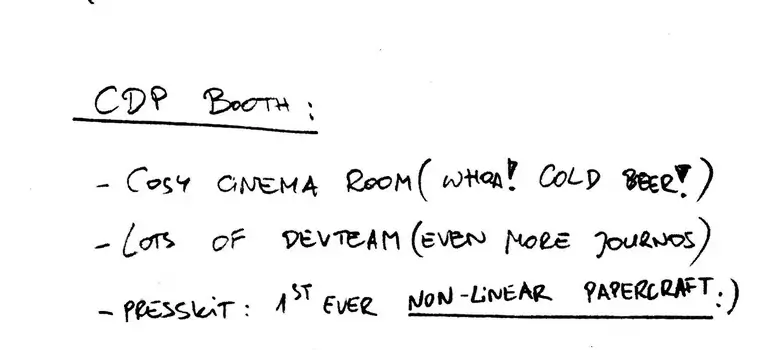 CDP BOOTH:
- COSY CINEMA ROOM (WHOA! COLD BEER!)
- LOTS OF DEVTEAM (EVEN MORE JOURNOS)
- PRESSKIT: 1ST EVER NON-LINEAR PAPERCRAFT :)